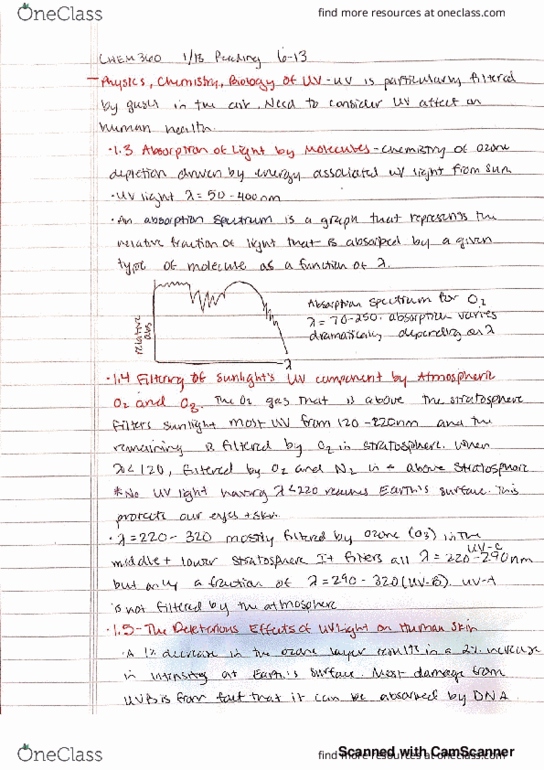 OneClass
find more resources at oneclass.com
CHEM 360 1/13 Reading 6-13
- Physics, Chemistry, Biology of UV - UV is particularly filtered
by gases in the air. Need to consider UV affect on
human health.
· 1.3 Absorption of Light by Molecules - Chemistry of ozone
depletion driven by energy associated w/ light from sun.
· UV light λ = 50 - 400nm
· An absorption spectrum is a graph that represents the
relative fraction of light that is absorbed by a given
type of molecule as a function of λ.
Absorption spectrum for O2
λ = 70-250. absorption varies
dramatically depending on λ
relative abs
λ
· 1.4 Filtering of sunlight's UV component by Atmospheric
O2 and O3. The O2 gas that is above the stratosphere
filters sunlight most UV from 120 - 220nm and the
remaining is filtered by O2 in stratosphere. When
λ < 120, filtered by O2 and N2 in + above stratosphere
* No UV light having λ < 220 reaches Earth's surface. This
protects our eyes + skin.
· λ = 220 - 320 mostly filtered by ozone (O3) in the
middle + lower stratosphere. It filters all λ = 220 - 290nm
UV-C
but only a fraction of λ = 290 - 320 (UV-B). UV-A
is not filtered by the atmosphere
· 1.5 - The Deleterious Effects of UV Light on Human Skin
· A 1% decrease in the ozone layer results in a 2% increase
in intensity at Earth's surface. Most damage from
UVB is from fact that it can be absorbed by DNA.
Scanned with CamScanner
OneClass
find more resources at oneclass.com